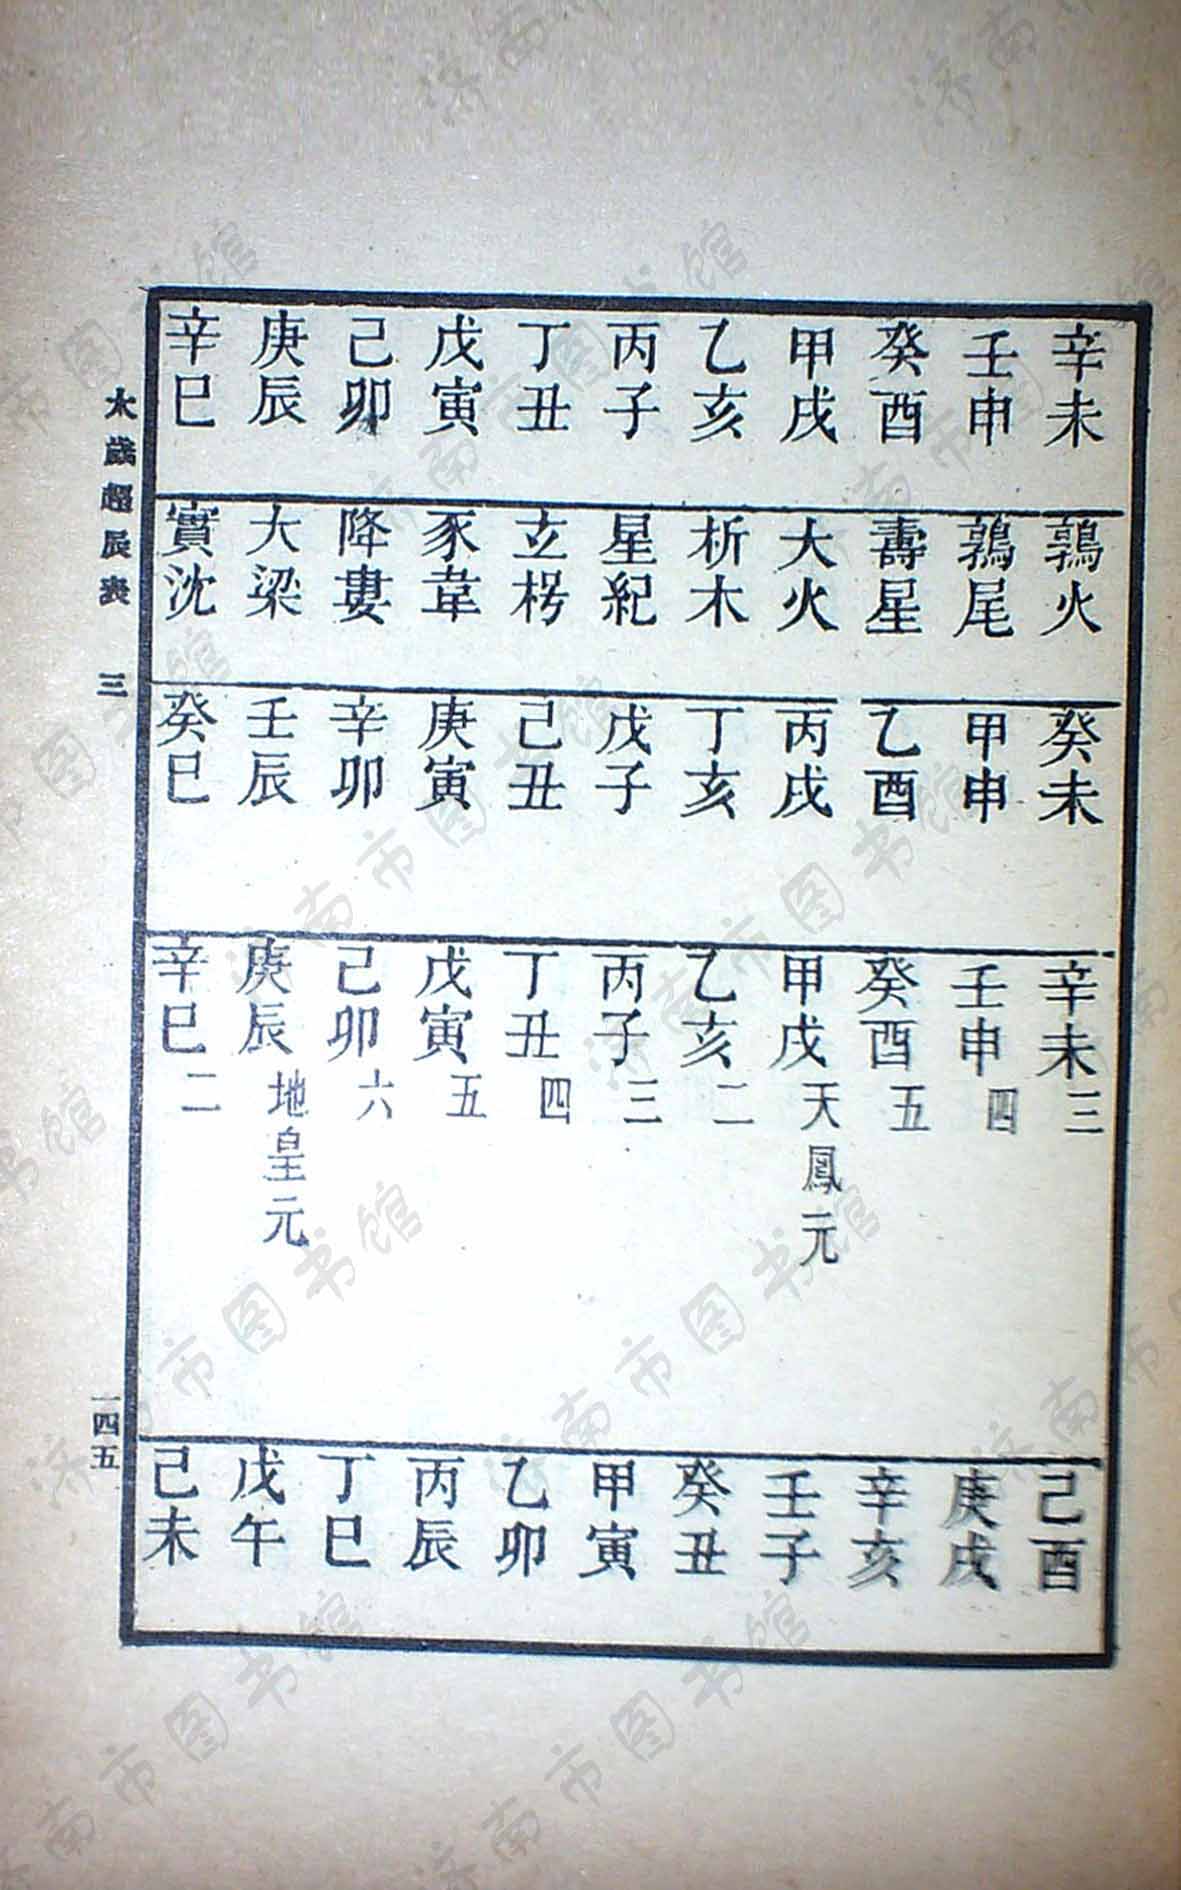 辛未 鶉火 癸未 辛未三 己酉
壬申 鶉尾 甲申 壬申四 庚戌
癸酉 壽星 乙酉 癸酉五 辛亥
甲戌 大火 丙戌 甲戌天鳳元 壬子
乙亥 析木 丁亥 乙亥二 癸丑
丙子 星紀 戊子 丙子三 甲寅
丁丑 玄枵 己丑 丁丑四 乙卯
戊寅 豕韋 庚寅 戊寅五 丙辰
己卯 降婁 辛卯 己卯六 丁巳
庚辰 大梁 壬辰 庚辰地皇元 戊午
辛巳 實沈 癸巳 辛巳二 己未
太歲超辰表 三
一四五
济南市图书馆